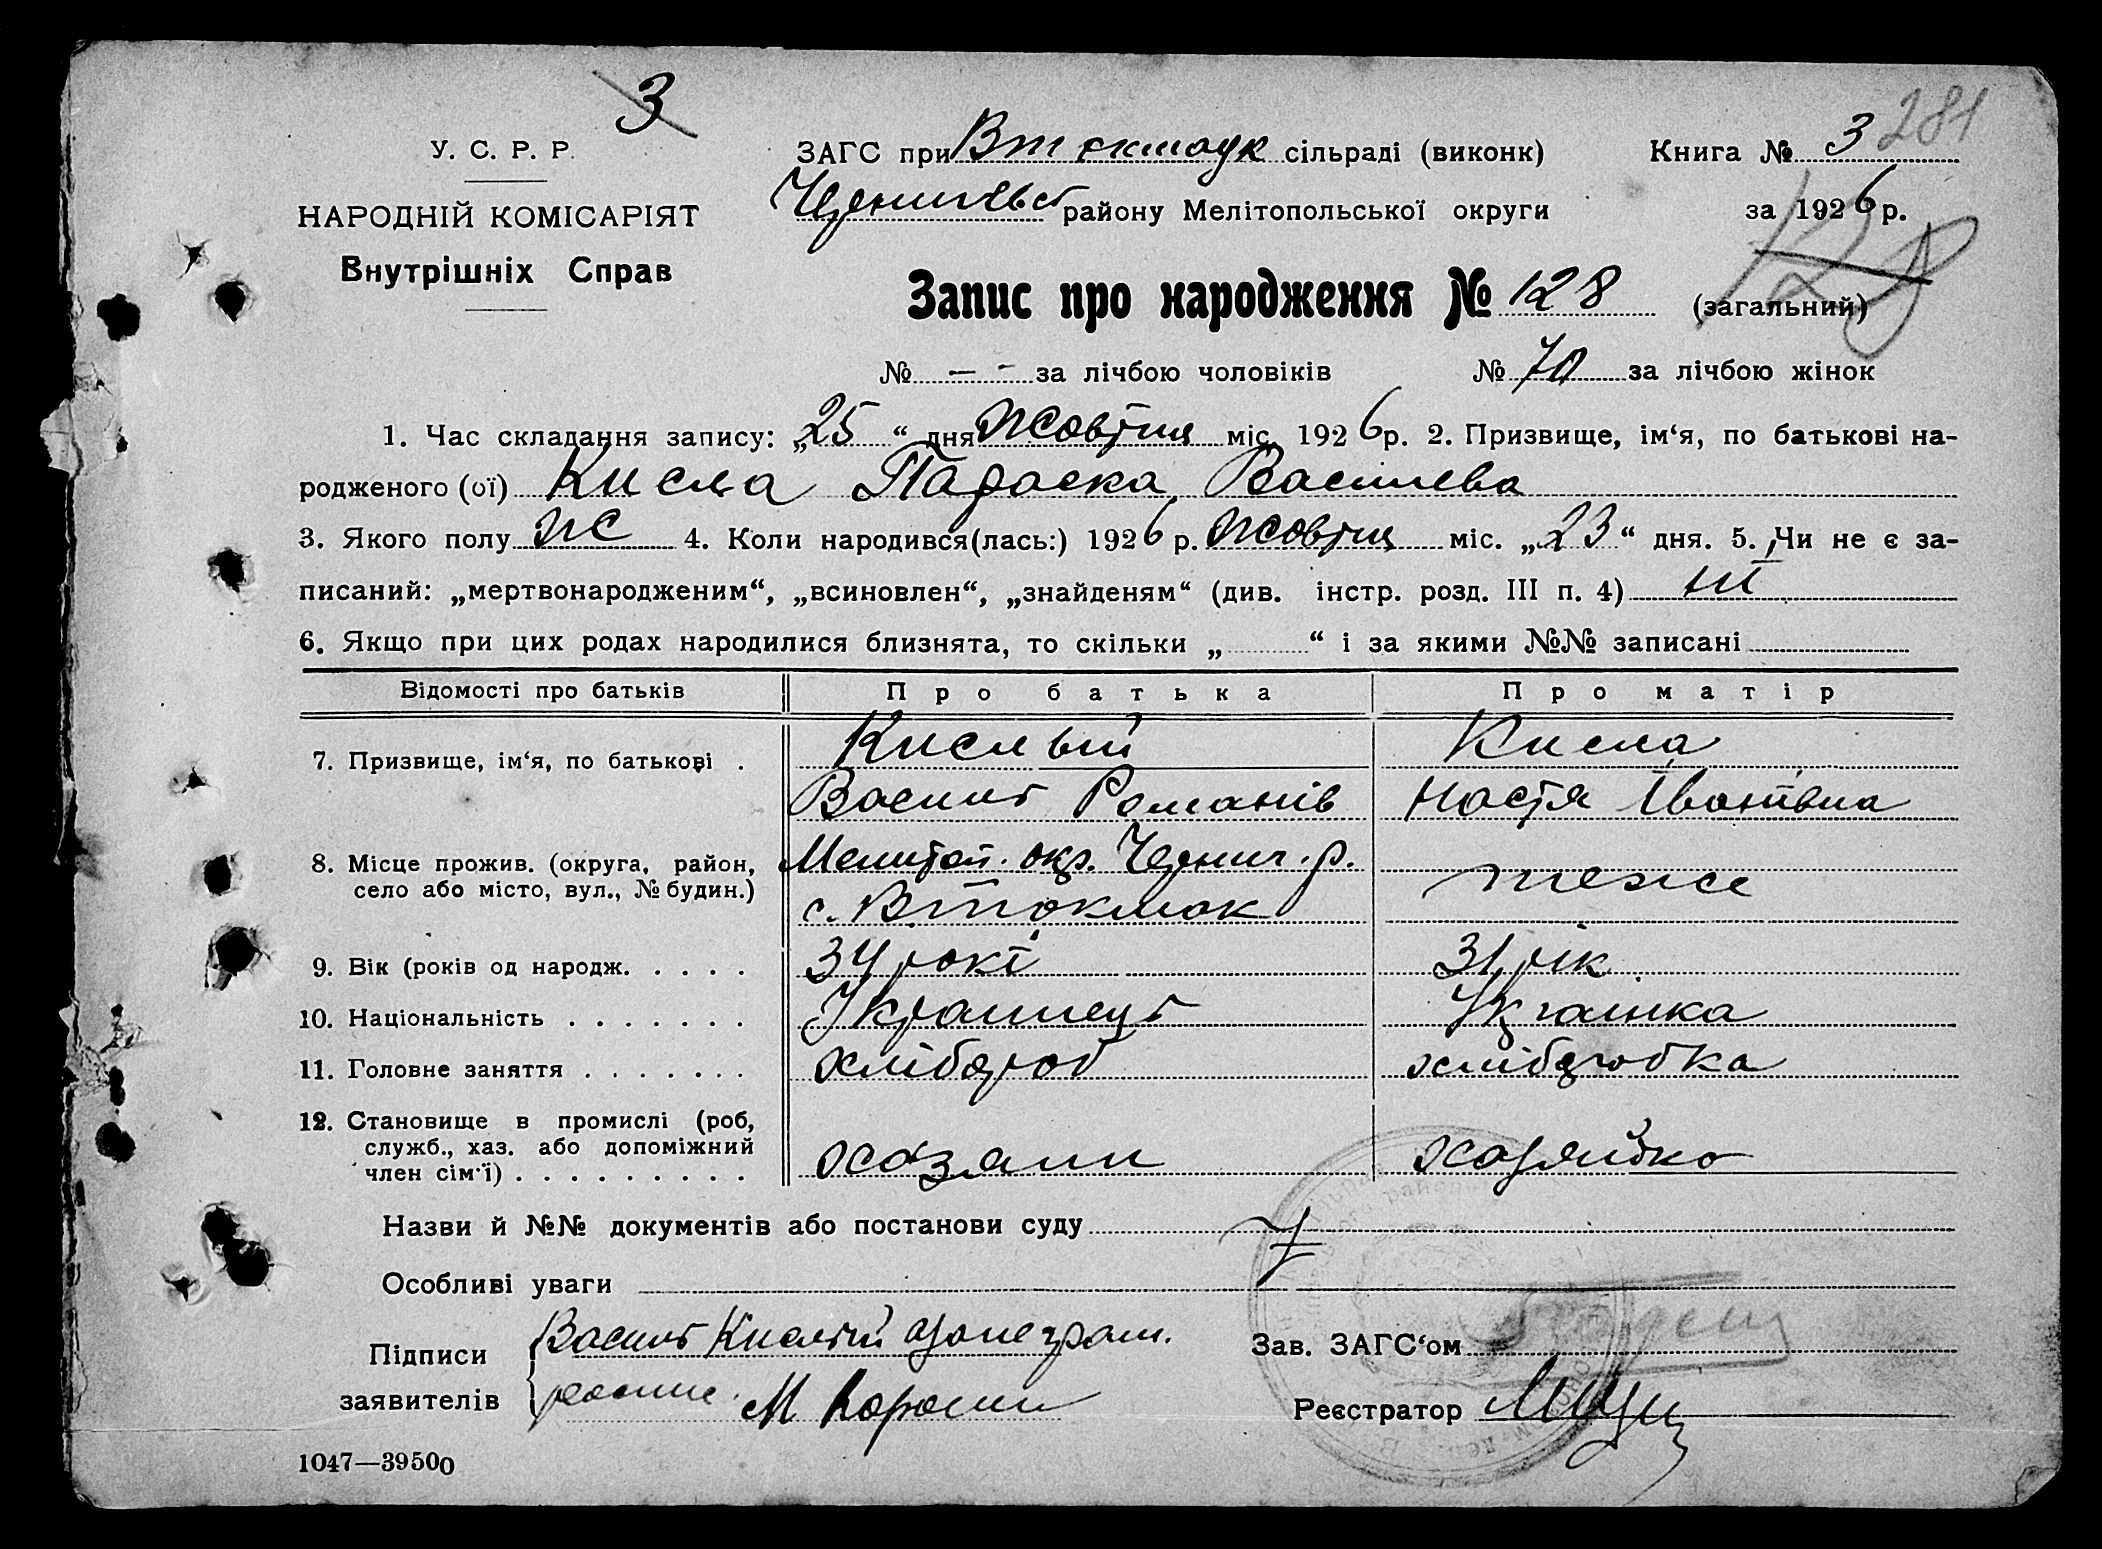 3
У. С. Р. Р.
ЗАГС при Втокмаук сільраді (виконк)
Книга № 3 281
НАРОДНІЙ КОМІСАРІЯТ
району Мелітопольської округи
за 1926 р.
Внутрішніх Справ
128
Запис про народження № 128 (загальний)
№ — - за лічбою чоловіків № 70 за лічбою жінок
1. Час складання запису: „25“ дня Жовтня міс. 1926 р. 2. Призвище, ім‘я, по батькові на-
родженого (ої) Кисла Параска Васильева
3. Якого полу ж 4. Коли народився(лась:) 1926 р. Жовтня міс. „23“ дня. 5. Чи не є за-
писаний: „мертвонародженим“, „всиновлен“, „знайденям“ (див. інстр. розд. III п. 4) ні
6. Якщо при цих родах народилися близнята, то скільки „ “ і за якими №№ записані
Відомості про батьків Про батька Про матір
7. Призвище, ім‘я, по батькові . Кислый Кисла
Василь Романів Настя Іванівна
8. Місце прожив. (округа, район, село або місто, вул., № будин.) Мелитоп. окр. Черниг. р. тоже
с. Втокмак
9. Вік (років од народж. . . . . 34 рокі 31 рік
10. Національність . . . . . . . Українець Українка
11. Головне заняття . . . . . . . хлібороб хліборобка
12. Становище в промислі (роб, служб., хаз. або допоміжний член сім‘ї) . . . . . . . . . хазяин хазяйка
Назви й №№ документів або постанови суду
Особливі уваги
Підписи заявителів Василь Кислый
М
Зав. ЗАГС‘ом
Реєстратор
1047—39500